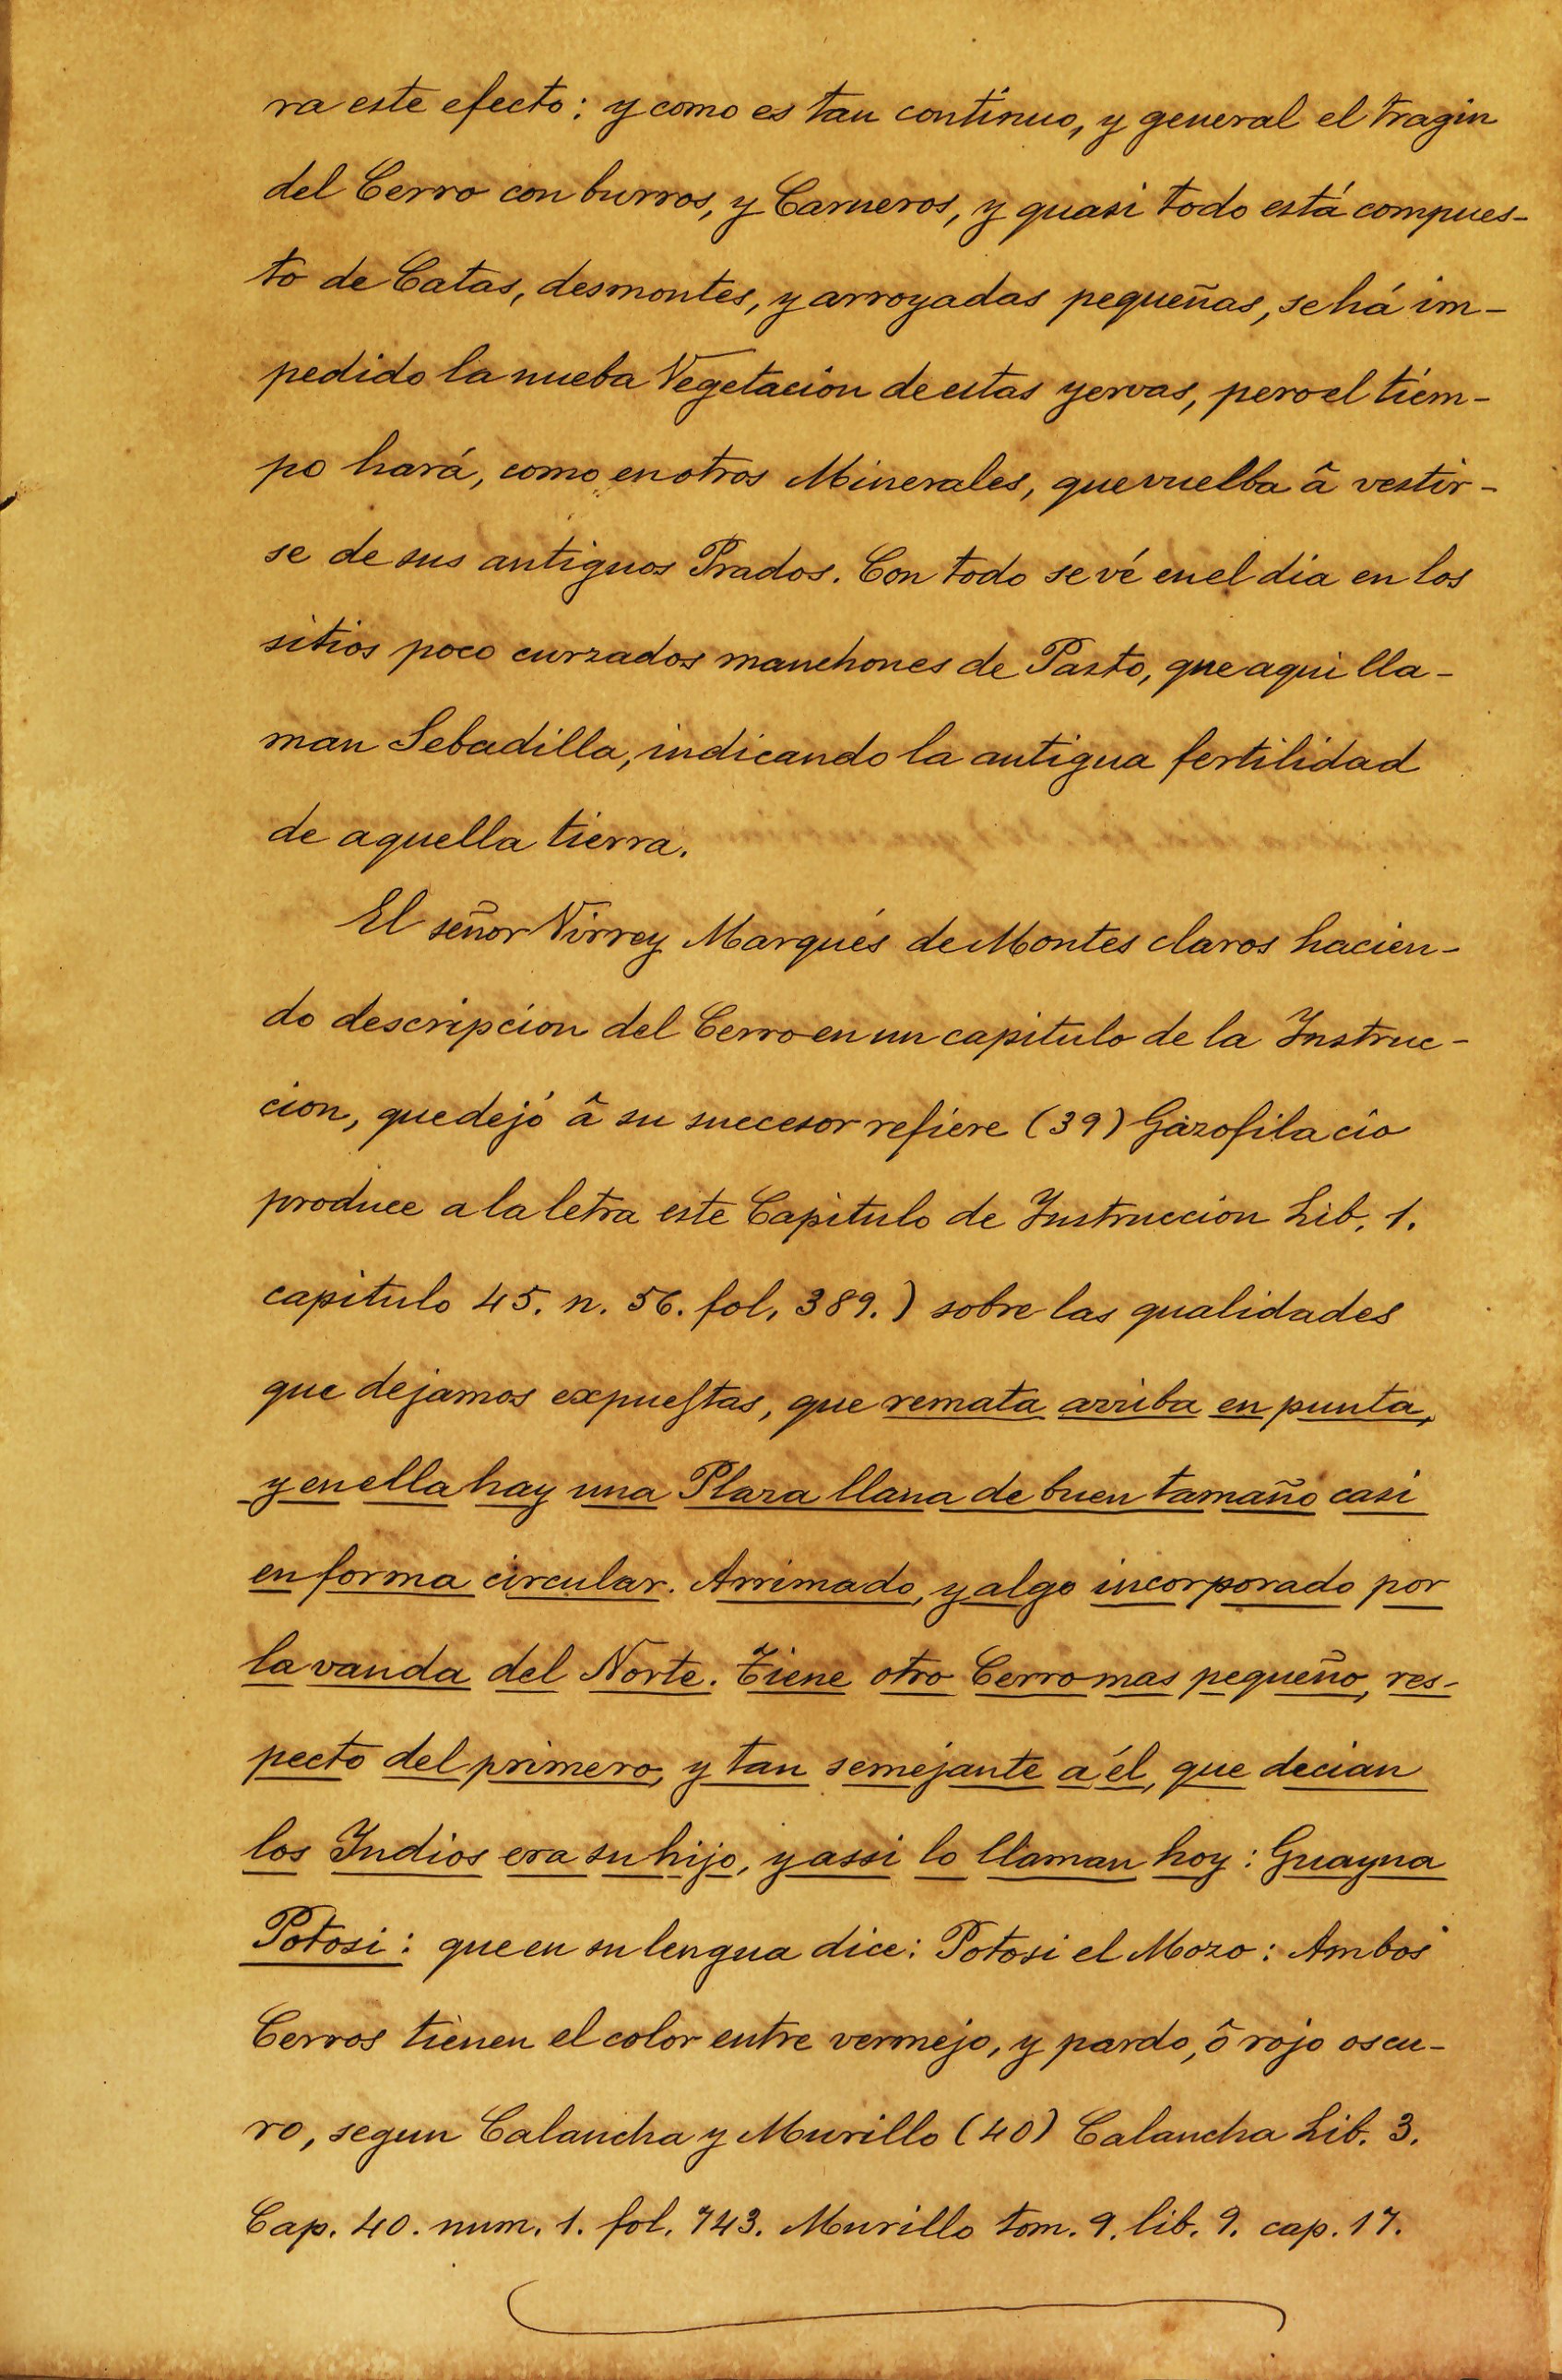 ra este efecto: y como es tan continuo, y general el tragin
del Cerro con burros, y Carneros, y quasi todo está compues-
to de Catas, desmontes, y arroyadas pequeñas, se há im-
pedido la nueba Vegetacion de estas yervas, pero el tiem-
po hará, como en otros Minerales, que vuelba â vestir-
se de sus antiguos Prados. Con todo se vé en el dia en los
sitios poco curzados manchones de Pasto, que aqui lla-
man Sebadilla, indicando la antigua fertilidad
de aquella tierra.
El señor Virrey Marqués de Montes claros hacien-
do descripcion del Cerro en un capitulo de la Instruc-
cion, que dejó â su succesor refiere (39) Gazofilacio
produce a la letra este Capitulo de Instruccion Lib. 1.
capitulo 45. n. 56. fol. 389.) sobre las qualidades
que dejamos expuestas, que remata arriba en punta,
y en ella hay una Plaza llana de buen tamaño casi
en forma circular. Arrimado, y algo incorporado por
la vanda del Norte. Tiene otro Cerro mas pequeño, res-
pecto del primero, y tan semejante a él, que decian
los Indios era su hijo, y assi lo llaman hoy: Guayna
Potosi: que en su lengua dice: Potosi el Mozo: Ambos
Cerros tienen el color entre vermejo, y pardo, ô rojo oscu-
ro, segun Calancha y Murillo (40) Calancha Lib. 3.
Cap. 40. num. 1. fol. 743. Murillo tom. 9. lib. 9. cap. 17.